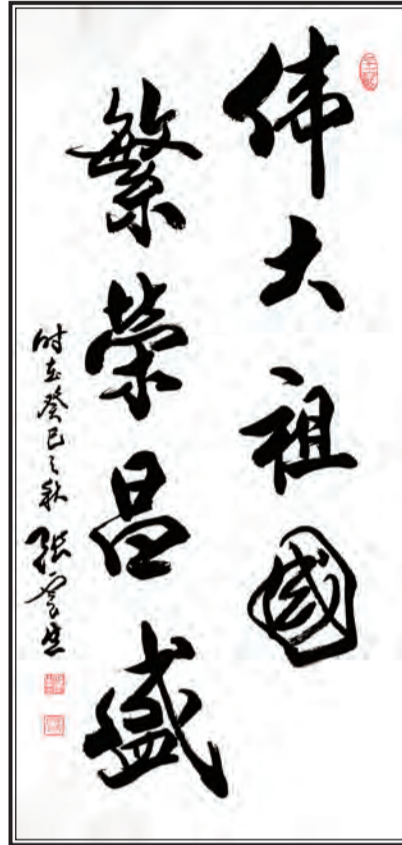 伟大祖國
繁荣昌盛
时在癸巳之秋 张